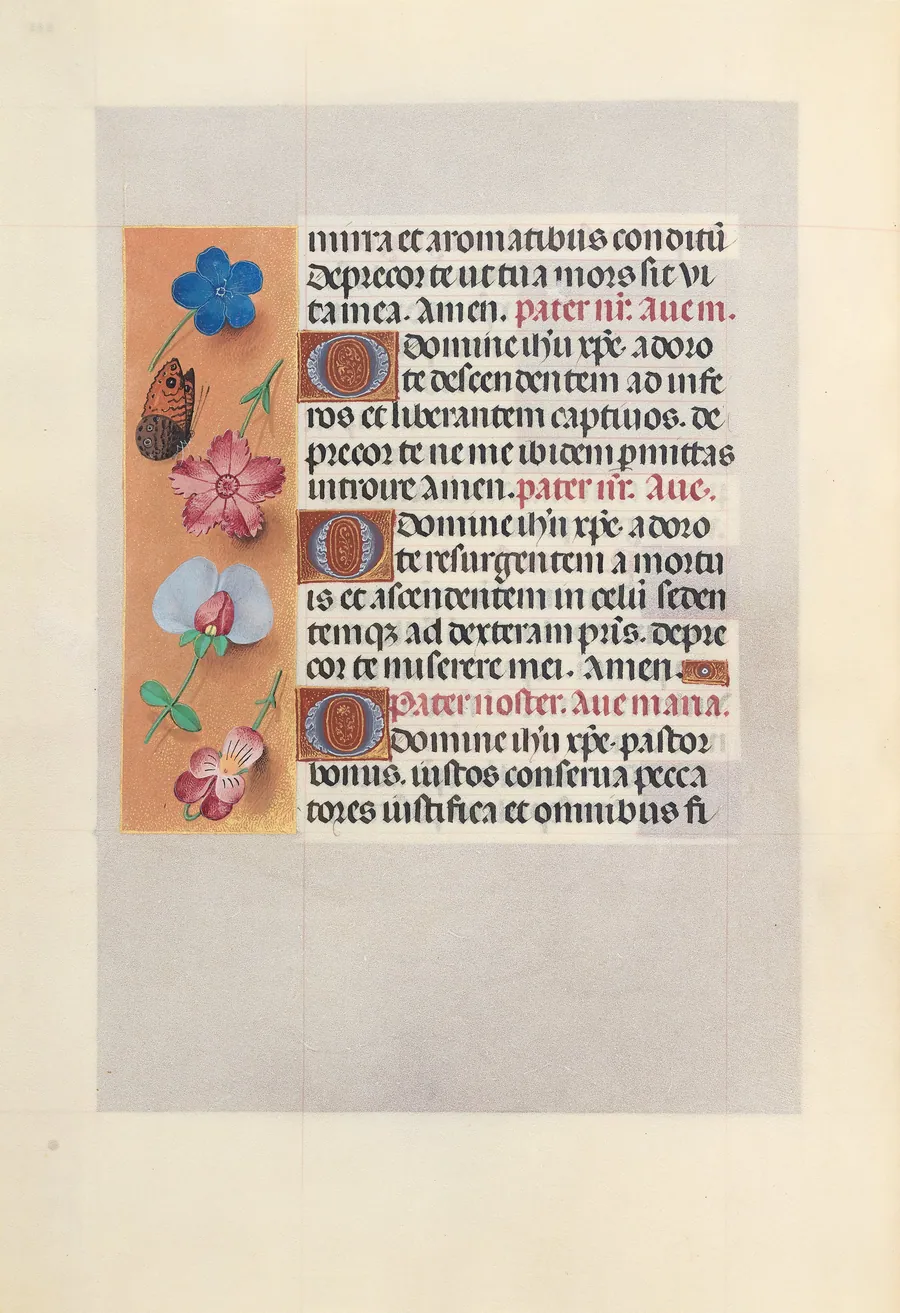 mirra et aromatibus conditū
deprecor te ut tua mors sit vi
ta mea. Amen. pater nr̄. Aue m.
O domine ih'u xp̄e· adoro
te descendentem ad infe
ros et liberantem captiuos. de
precor te ne me ibidem ꝑmittas
introire Amen. pater nr̄. Aue.
O domine ih'u xp̄e· adoro
te resurgentem a mortu
is et ascendentem in celū seden
temqꝫ ad dexteram pr̄is. depre
cor te miserere mei. Amen.
Pater noster. Aue maria.
O domine ih'u xp̄e· pastor
bonus. iustos conserua pecca
tores iustifica et omnibus fi